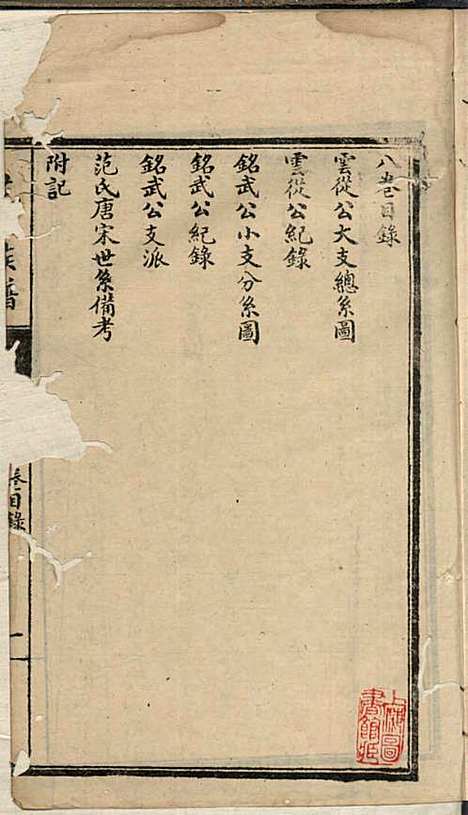 八卷目錄
雲從公大支總系圖
雲從公紀錄
銘武公小支分系圖
銘武公紀錄
銘武公支派
范氏唐宋世系備考
附記
族譜
卷目錄
一